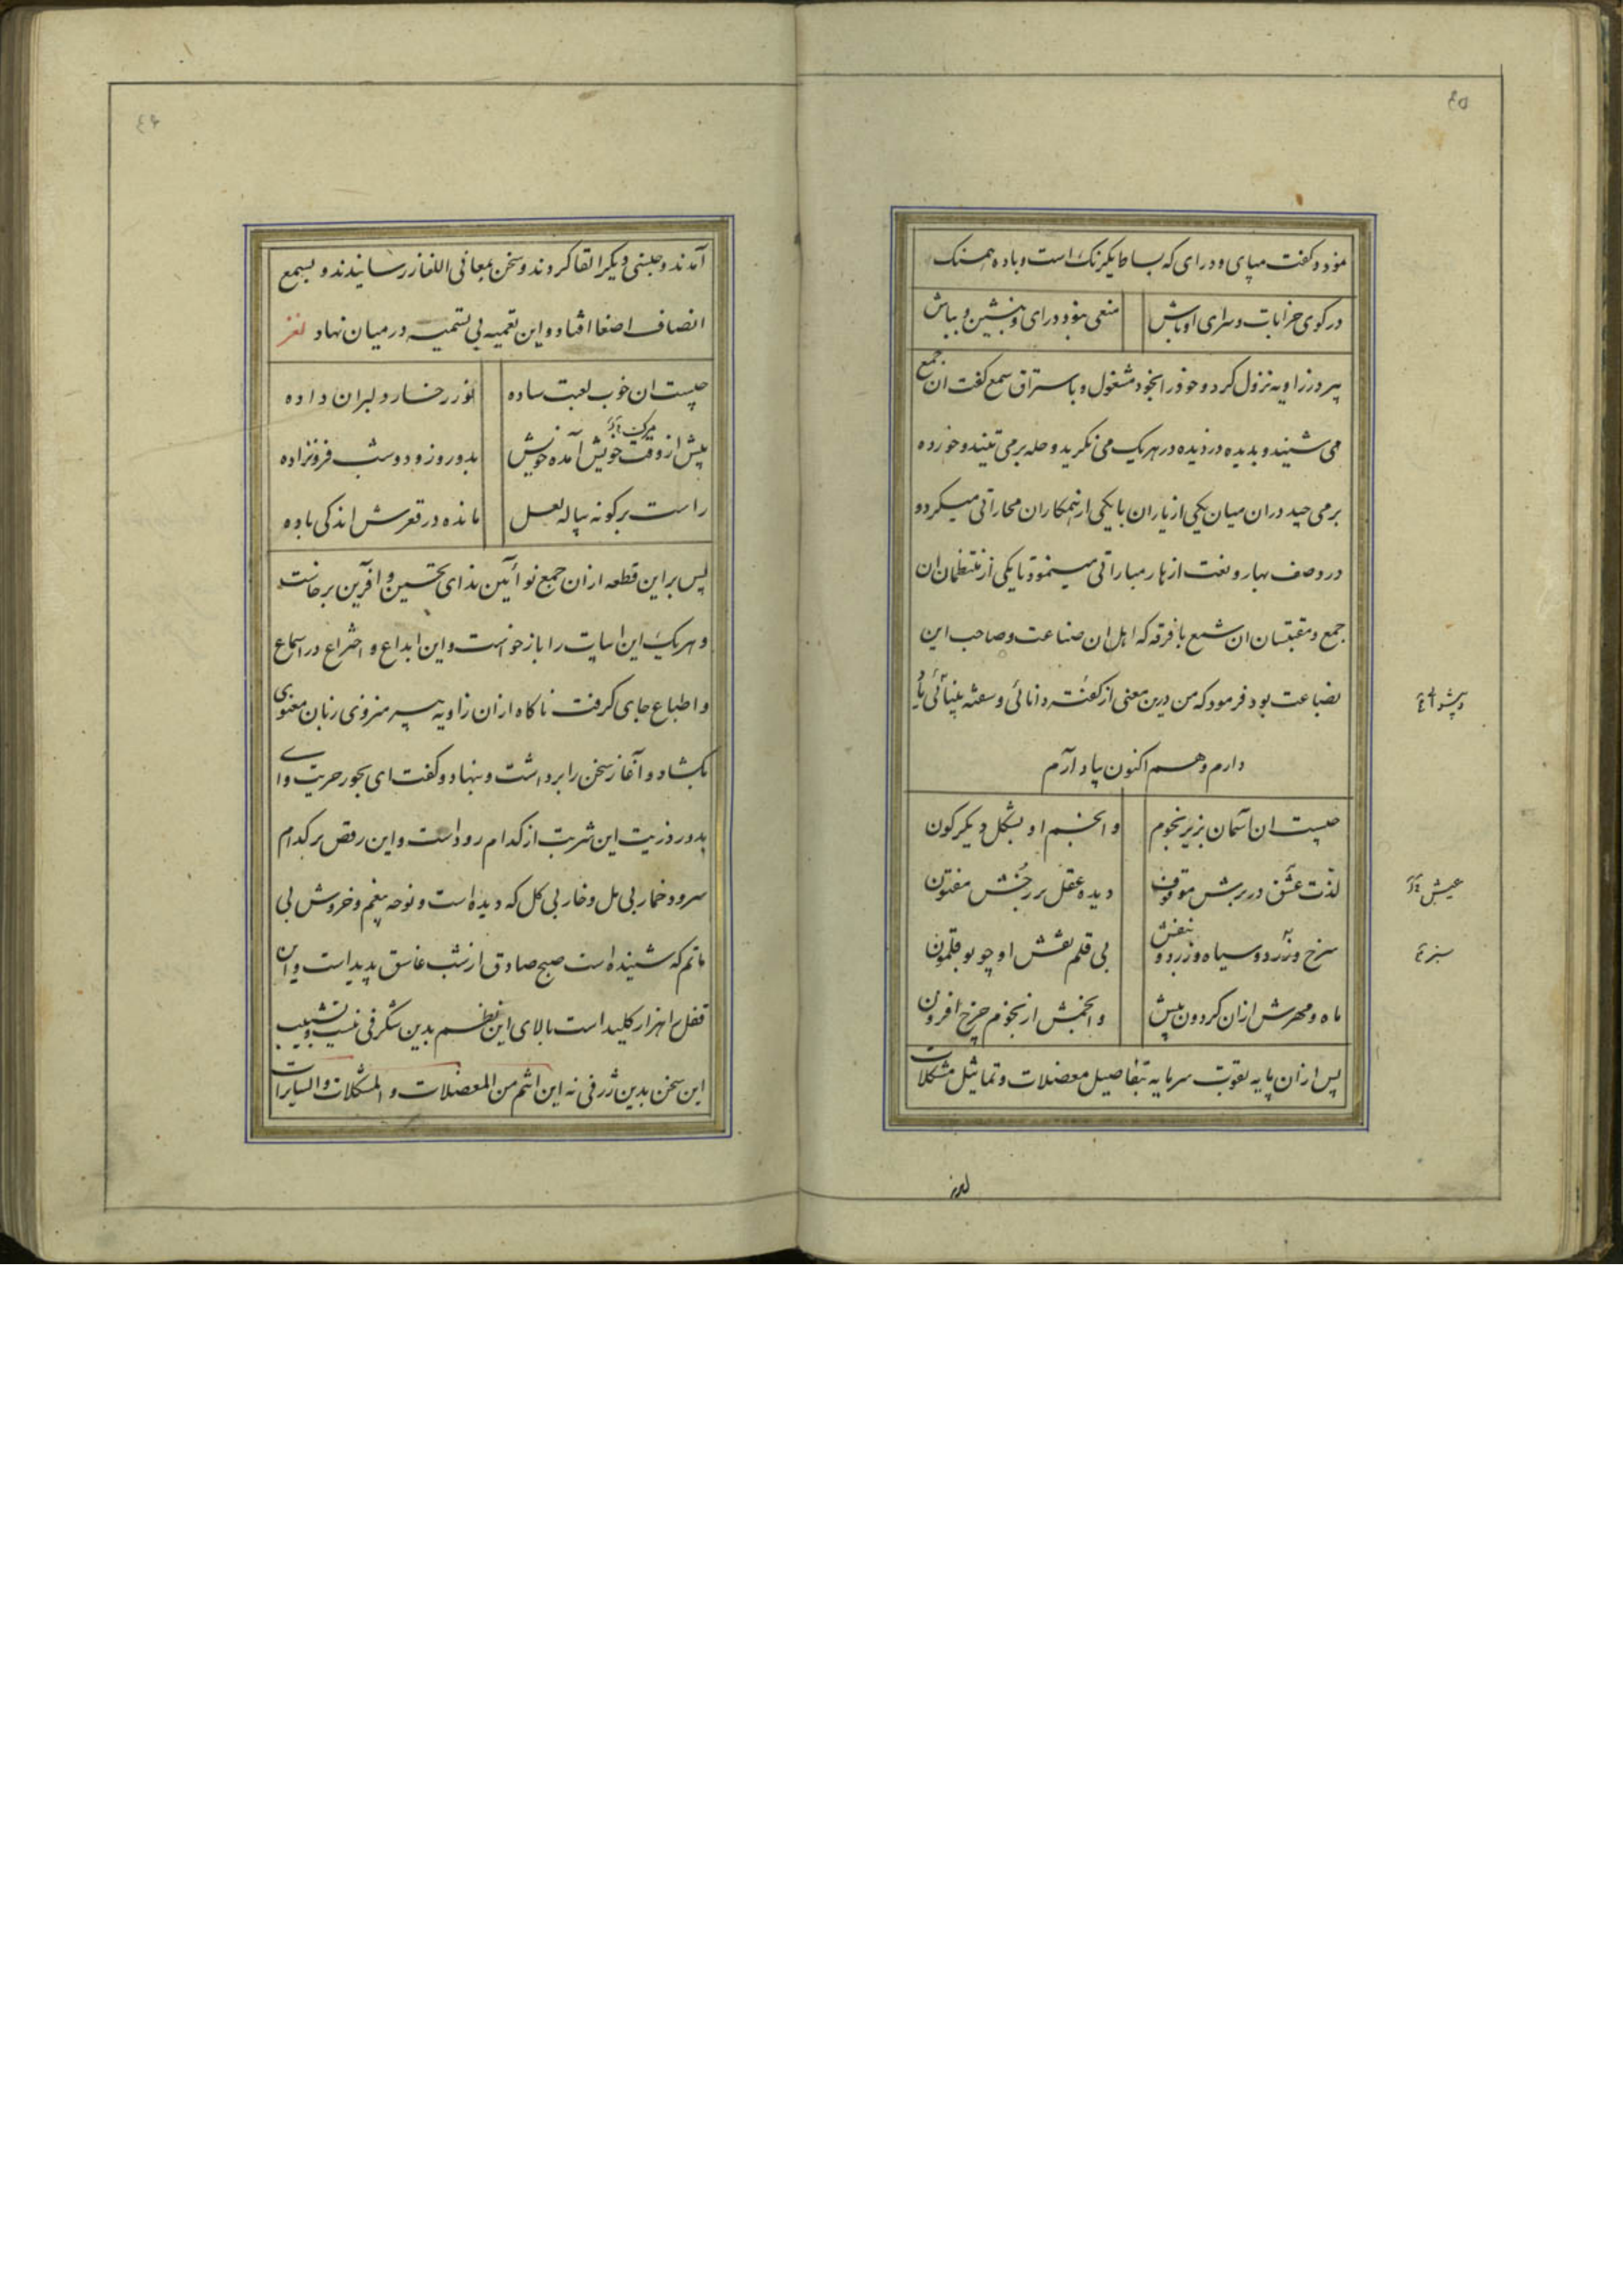 ٤٥
نمود و گفت مپای و درای که بساط یکرنک است و باده همسنک
در کوی خرابات و سرای اوباش منعی نبود درای و بنشین و بباش
پیر در زاویه نزول کرد و خود را بخود مشغول و باستراق سمع گفت ان جمع
می شنید و بدیده دزدیده در هر یک می نگرید و حله بر می تنید و خورده
بر می چید در ان میان یکی از یاران با یکی از همکاران مجاراتی میکرد و
در وصف بهار و نعت ازهار مباراتی مینمود تا یکی از منتظمان ان
جمع و مقتبسان ان شمع با فرقه که اهل ان صناعت و صاحب این
بضاعت بود فرمود که من درین معنی از گفته دانائی و سفته بینائی یاد
دارم و هم اکنون یاد آرم
چیست ان آسمان بزیر نجوم وانجم او بشکل دیگرگون
لذت عشق در برش موقوف دیده عقل بر رخش مفتون
عیش
سرخ و زرد و سیاه و زرد و بنفش بی قلم نقش او چو بوقلمون
سبز
ماه و مهرش ازان گردون بیش وانجمش از نجوم چرخ افزون
پس ازان پایه بقوت سرمایه بتفاصیل معضلات و تماثیل مشکلات
٤٦
آمدند و جستی دیگر القا کردند و سخن بمعانی الغاز رسانیدند و بسمع
انصاف اصغا افتاد و این تعمیه بی تسمیه در میان نهاد لغز
چیست ان خوب لعبت ساده نور رخسار دلبران داده
پیش از وقت خویش آمده خویش بدو روز و دو شب فروزاده
راست بر گونه پیاله لعل مانده در قعرش اندکی باده
پس بر این قطعه ازان جمع نوآئین ندای تحسین و آفرین برخاست
و هر یک این ابیات را باز خواست و این ابداع و اختراع در اسماع
و اطباع جای گرفت ناگاه ازان زاویه پیر منزوی زبان معنوی
بگشاد و آغاز سخن را برداشت و بنهاد و گفت ای بجور حریت وای
بدور ذریت این شربت از کدام رود است و این رقص بر کدام
سرود خمار بی مل و خار بی گل که دیده است و نوحه بیغم و خروش بی
ماتم که شنیده است صبح صادق از شب غاسق پدید است و این
قفل را هزار کلید است بالای این نظم بدین شگرفی نیست و تشبیب
این سخن بدین ژرفی نه این اثم من المعضلات و المشکلات والسایرات